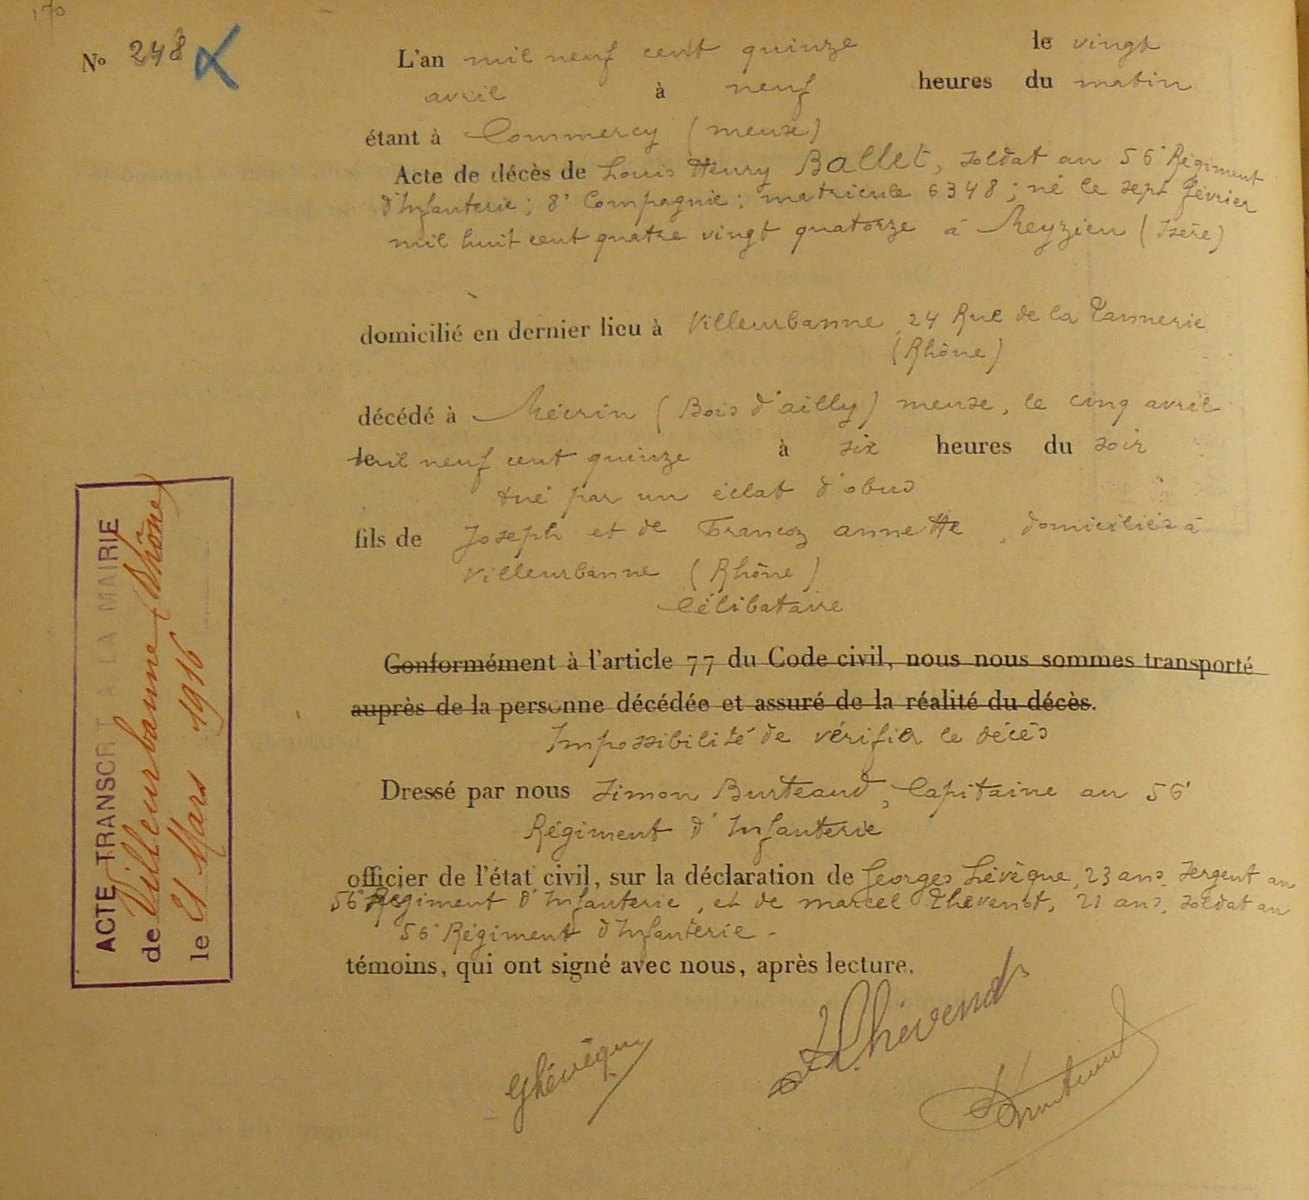 170
N° 248
L'an mil neuf cent quinze le vingt
avril à neuf heures du matin
étant à Commercy (meuse)
Acte de décès de Louis Henry Ballet, soldat au 56e Régiment
d'Infanterie; 8e Compagnie; matricule 6348; né le sept février
mil huit cent quatre vingt quatorze à Meyzieu (Isère)
domicilié en dernier lieu à Villeurbanne, 24 Rue de la Tannerie
(Rhône)
décédé à Mécrin (Bois d'ailly) meuse, le cinq avril
mil neuf cent quinze à six heures du soir
tué par un éclat d'obus
fils de Joseph et de Francoz annette, domiciliés à
Villeurbanne (Rhône)
Célibataire
Conformément à l'article 77 du Code civil, nous nous sommes transporté
auprès de la personne décédée et assuré de la réalité du décès.
Impossibilité de vérifier le décès
Dressé par nous Simon Burteaud, Capitaine au 56e
Régiment d'Infanterie
officier de l'état civil, sur la déclaration de Georges Lévêque, 23 ans, Sergent au
56e Régiment d'Infanterie, et de marcel Thévenot, 21 ans, soldat au
56e Régiment d'Infanterie -
témoins, qui ont signé avec nous, après lecture.
GLévêque
Thévenot
ACTE TRANSCRIT A LA MAIRIE
de Villeurbanne (Rhône)
le 21 Mars 1916